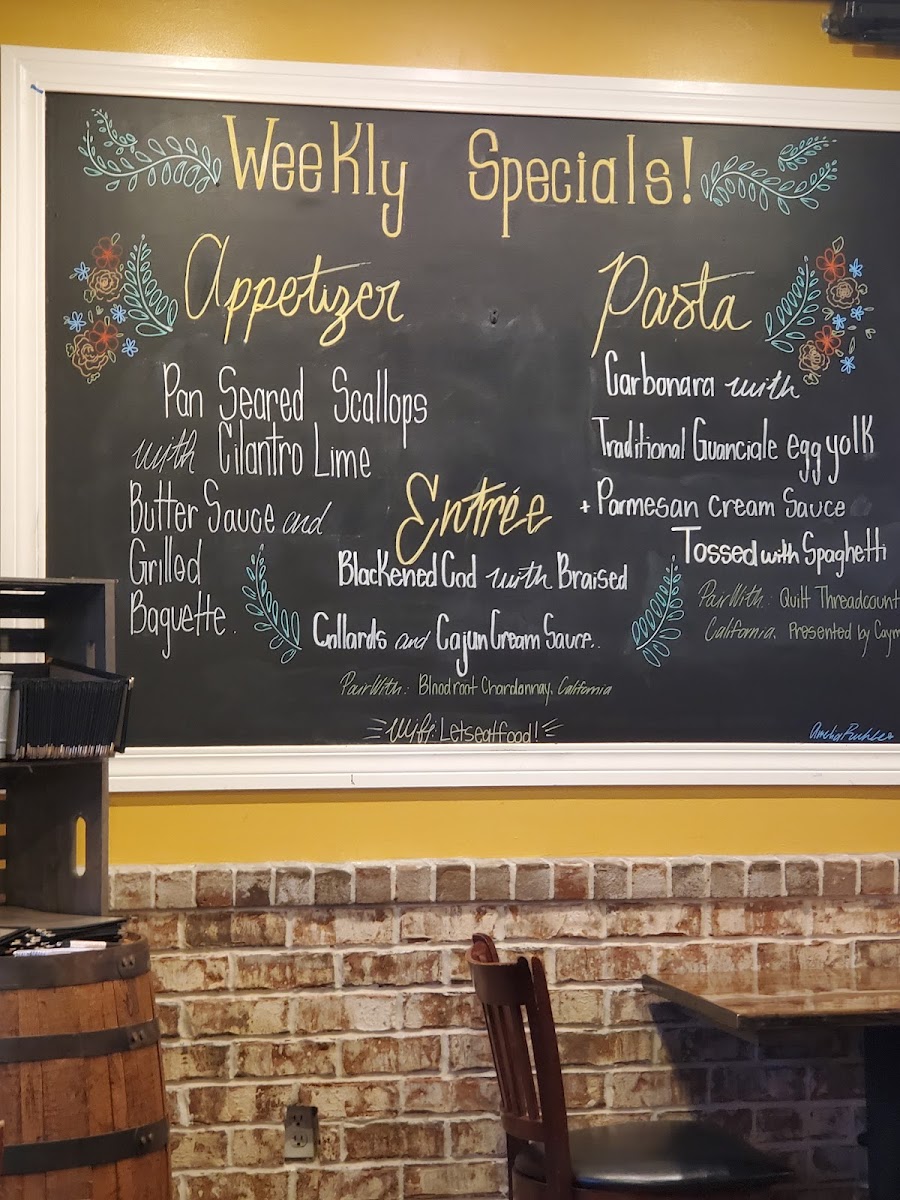 Weekly Specials!
Appetizer
Pan Seared Scallops
with Cilantro Lime
Butter Sauce and
Grilled
Baguette.
Entrée
Blackened Cod with Braised
Collards and Cajun Cream Sauce..
Pair With: Bloodroot Chardonnay, California
Wifi: Letseatfood!
Pasta
Carbonara with
Traditional Guanciale egg yolk
+ Parmesan Cream Sauce
Tossed with Spaghetti
Pair With: Quilt Threadcount
California. Presented by Caym